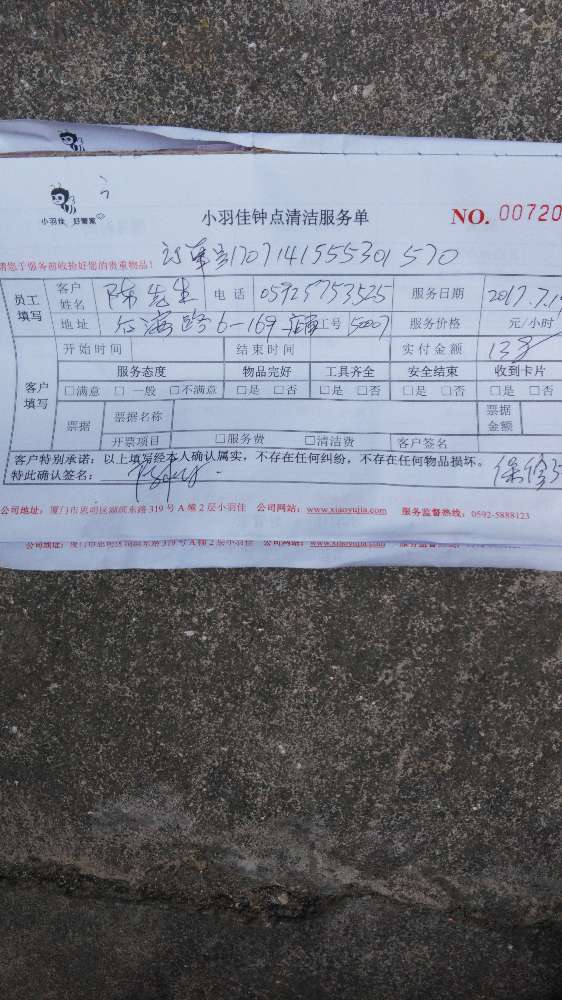 小羽佳 好管家
小羽佳钟点清洁服务单
NO. 00720
请您于服务前收拾好您的贵重物品!
订单号1707141555301570
员工填写
客户姓名 陈先生 电话 05925753525 服务日期 2017.7.1
地址 6-169 工号 50007 服务价格 元/小时
客户填写
开始时间 结束时间 实付金额 138
服务态度 物品完好 工具齐全 安全结束 收到卡片
□满意 □一般 □不满意 □是 □否 □是 □否 □是 □否 □是 □否
票据 票据名称 票据金额
开票项目 □服务费 □清洁费 客户签名
客户特别承诺：以上填写经本人确认属实，不存在任何纠纷，不存在任何物品损坏。
特此确认签名： 保修3
公司地址：厦门市思明区湖滨东路319号A幢2层小羽佳 公司网站：www.xiaoyujia.com 服务监督热线：0592-5888123
公司地址：厦门市思明区湖滨东路319号A幢2层小羽佳 公司网站：www.xiaoyujia.com 服务监督热线：0592-5888123